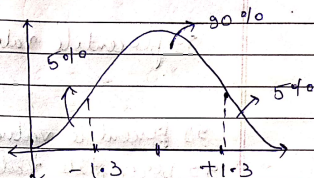 90%
5%
5%
-1.3
+1.3